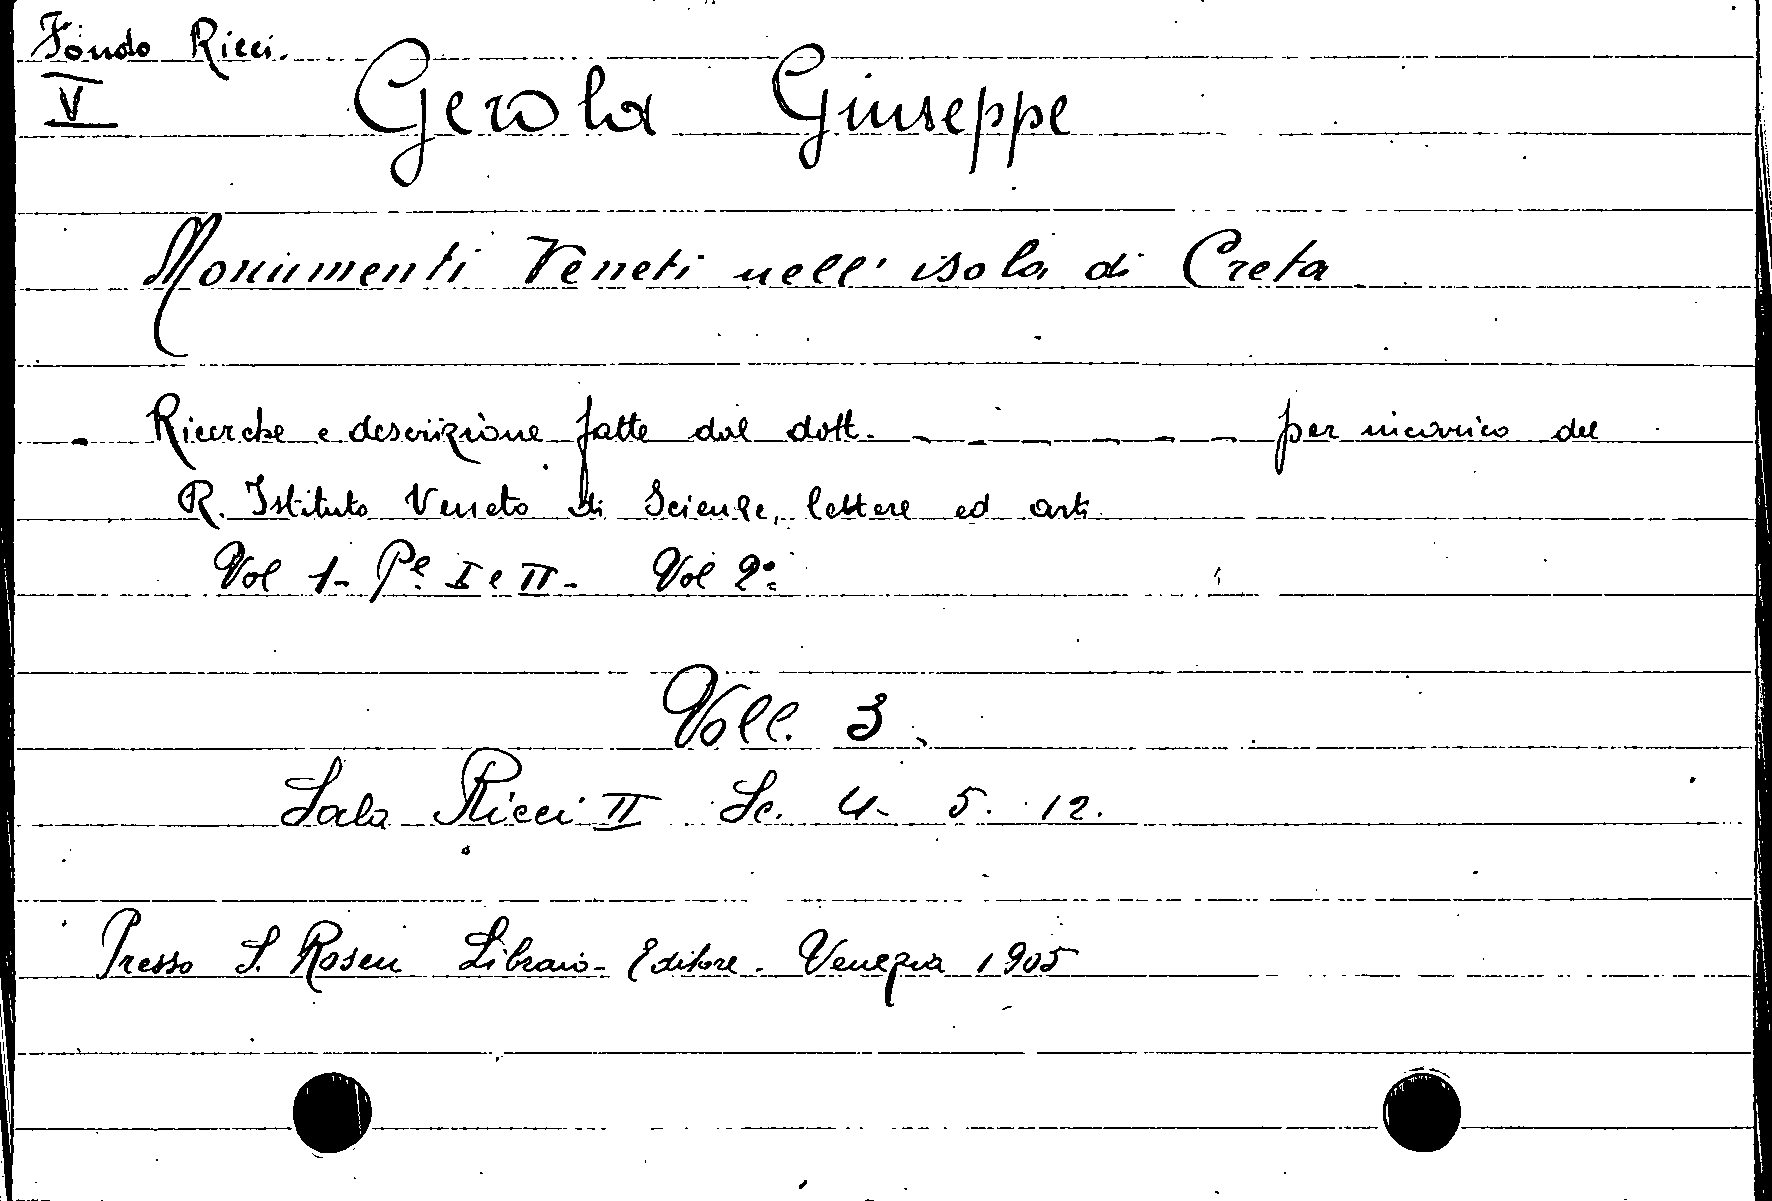 Fondo Ricci.
V
Gerola Giuseppe
Monumenti Veneti nell' isola di Creta
- Ricerche e descrizione fatte dal dott. - - - - - - per incarico del
R. Istituto Veneto di Scienze, lettere ed arti
Vol 1- Pe I e II - Vol 2°
Voll. 3.
Sala Ricci II Sc. 4- 5. 12.
Presso S. Rosen Libraio- Editore. Venezia 1905